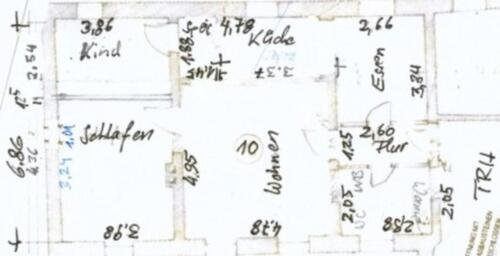 3,86
Kind
4,78
Küche
2,66
Essen
3,34
1.88
3.37
2,54
12⁵
6,86
4,36
Schlafen
3,24
1.01
4,95
10
Wohnen
1,25
2,60
Flur
2,05
WC
WB
2,58
2,05
TRH
3,98
4,78